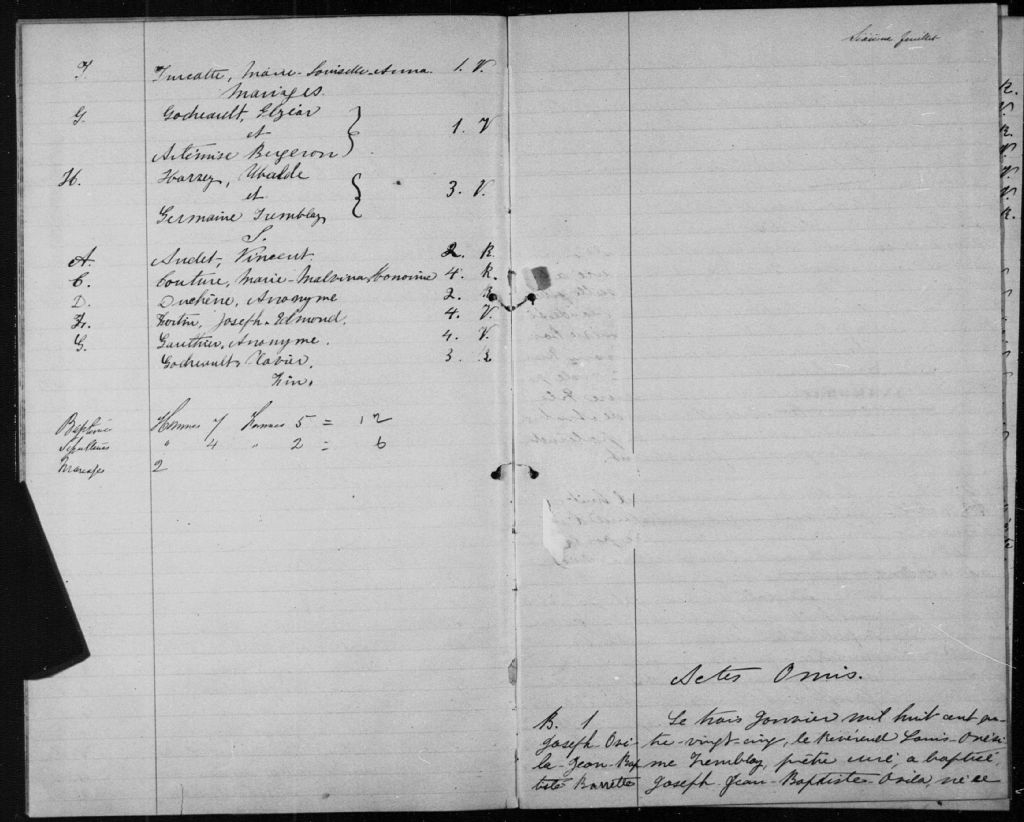 T. Turcotte, Marie-Louiselle-Anna. 1. V.
Mariages.
G. Godreault, Elzéar
et
Artémise Bergeron 1. V
H. Harvey, Ubalde
et
Germaine Tremblay 3. V.
S.
A. Audet, Vincent. 2. R.
C. Couture, Marie-Malvina Honorine 4. R.
D. Duchêne, Anonyme 2. R
F. Fortin, Joseph-Elmond. 4. V.
G. Gauthier, Anonyme. 4. V.
Godreault Xavier. 3.
Fin.
Baptêmes Hommes 7 Femmes 5 = 12
Sépultures " 4 " 2 = 6
Mariages 2
Sixième feuillet
Actes Omis.
B. 1 Le trois Janvier mil huit cent qua-
Joseph-Ovi- tre-vingt-cinq, le Révérend Louis-Onési-
la-Jean-Bap me Tremblay, prêtre curé, a baptisé
tiste Barrette Joseph-Jean-Baptiste Ovila, né ce